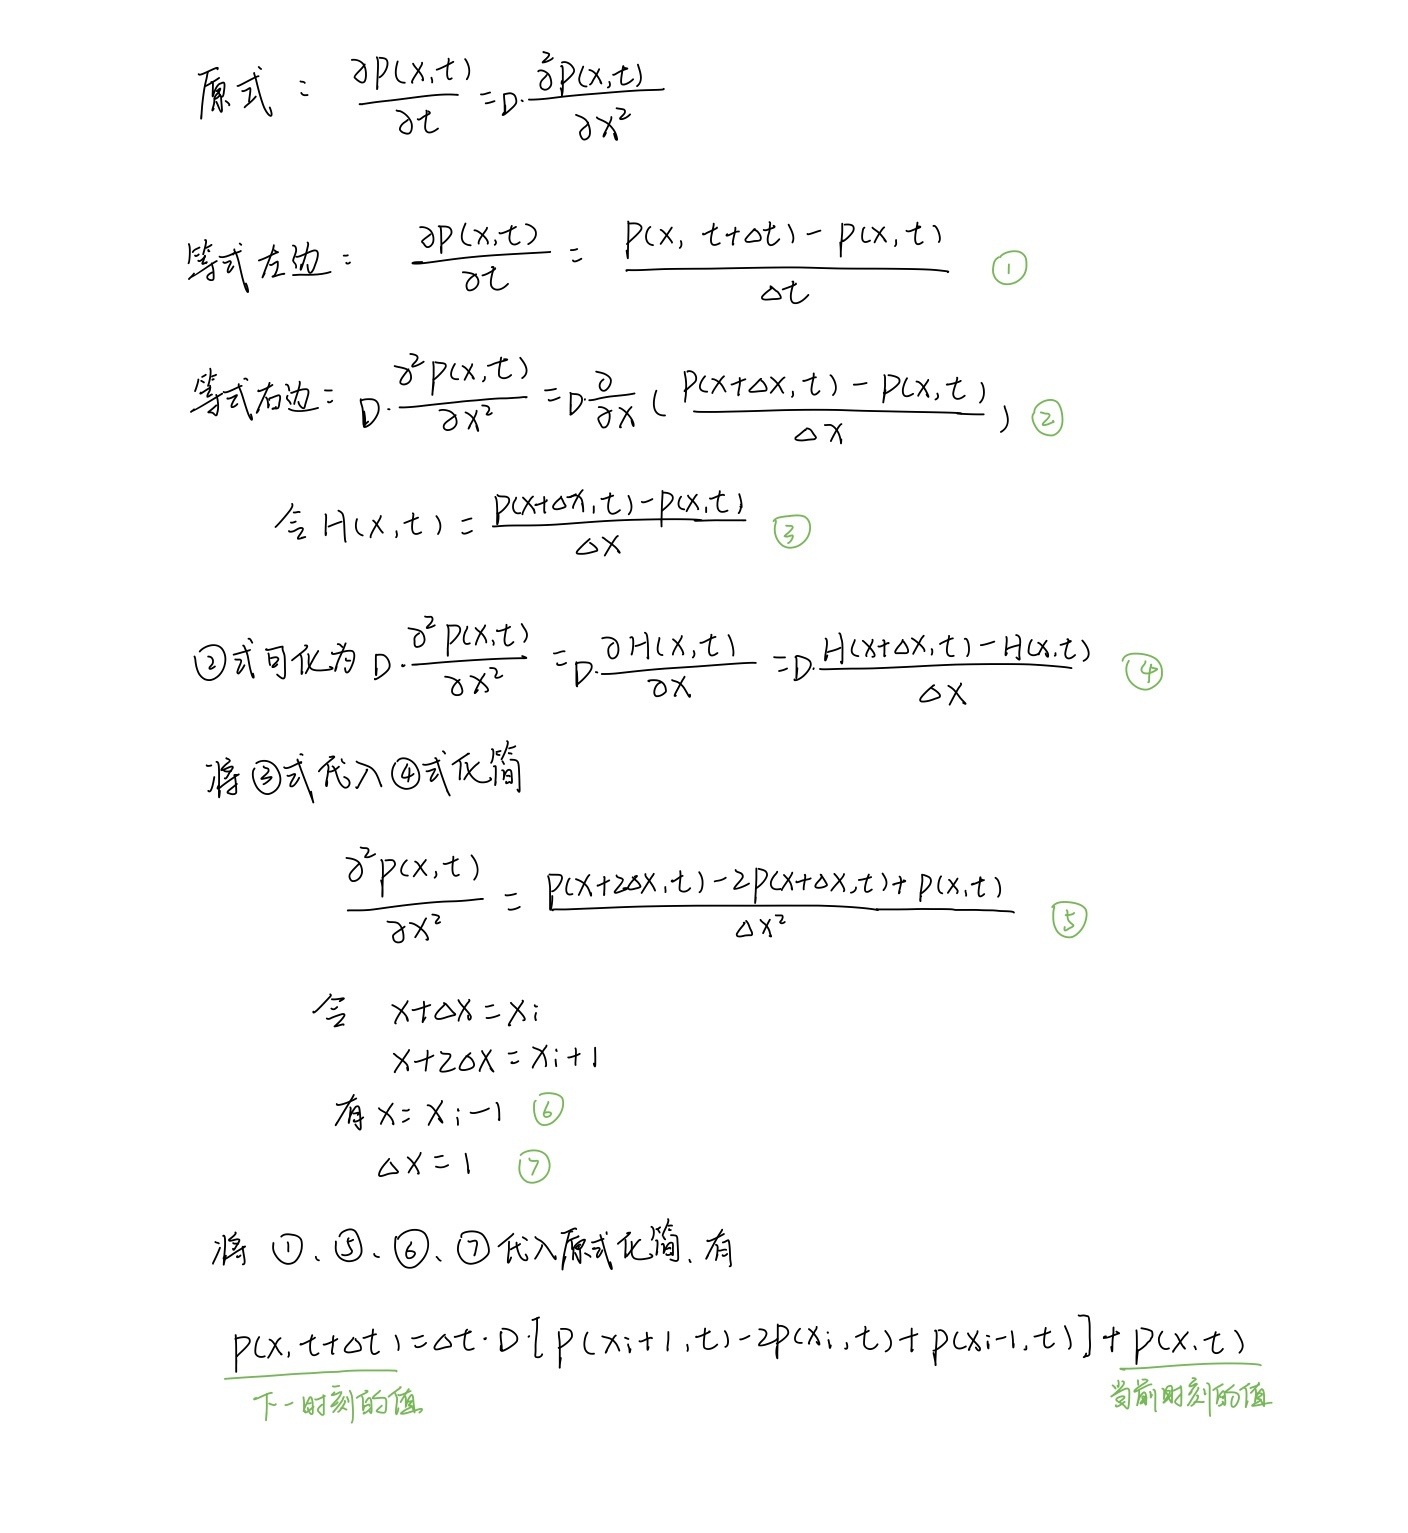 原式： ∂P(x,t)/∂t = D·∂²P(x,t)/∂x²
等式左边： ∂P(x,t)/∂t = P(x, t+Δt) - P(x,t)/Δt ①
等式右边： D·∂²P(x,t)/∂x² = D·∂/∂x ( P(x+Δx,t) - P(x,t)/Δx ) ②
令 H(x,t) = P(x+Δx,t) - P(x,t)/Δx ③
②式可化为 D·∂²P(x,t)/∂x² = D·∂H(x,t)/∂x = D·H(x+Δx,t) - H(x,t)/Δx ④
将③式代入④式化简
∂²P(x,t)/∂x² = P(x+2Δx,t) - 2P(x+Δx,t) + P(x,t)/Δx² ⑤
令 x+Δx = xi
x+2Δx = xi+1
有 x = xi-1 ⑥
Δx = 1 ⑦
将 ①、⑤、⑥、⑦代入原式化简、有
P(x, t+Δt) = Δt·D·[P(xi+1,t) - 2P(xi,t) + P(xi-1,t)] + P(x,t)
下一时刻的值 当前时刻的值